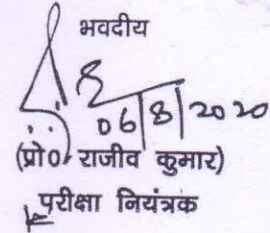 भवदीय
06/8/2020
(प्रो०, राजीव कुमार)
परीक्षा नियंत्रक